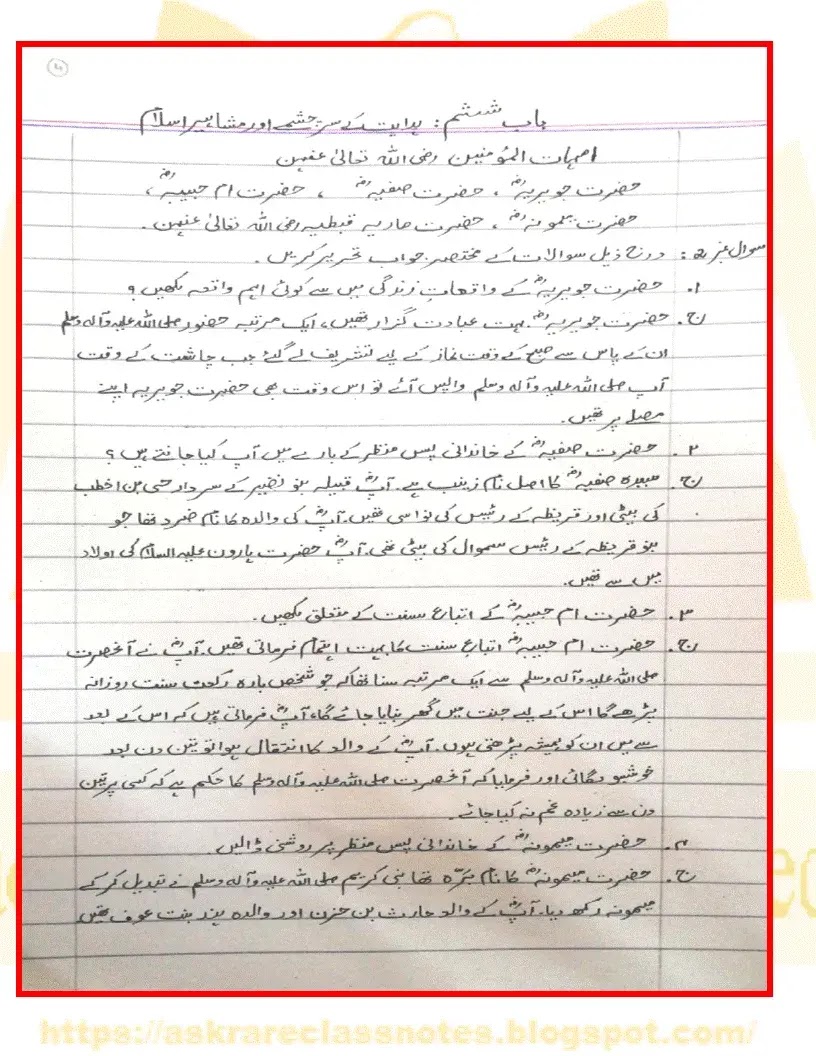 باب ششم: ہدایت کے سرچشمے اور مشاہیر اسلام
امہات المؤمنین رضی اللہ تعالیٰ عنہن
حضرت جویریہؓ، حضرت صفیہؓ، حضرت ام حبیبہؓ،
حضرت میمونہؓ، حضرت ماریہ قبطیہ رضی اللہ تعالیٰ عنہن۔
سوال نمبر 2: درج ذیل سوالات کے مختصر جواب تحریر کریں۔
۱۔ حضرت جویریہؓ کے واقعات زندگی میں سے کوئی اہم واقعہ لکھیں؟
ج۔ حضرت جویریہؓ بہت عبادت گزار تھیں، ایک مرتبہ حضور صلی اللہ علیہ وآلہ وسلم
ان کے پاس سے صبح کے وقت نماز کے لیے تشریف لے گئے جب چاشت کے وقت
آپ صلی اللہ علیہ وآلہ وسلم واپس آئے تو اس وقت بھی حضرت جویریہ اپنے
مصلے پر تھیں۔
۲۔ حضرت صفیہؓ کے خاندانی پس منظر کے بارے میں آپ کیا جانتے ہیں؟
ج۔ سیدہ صفیہؓ کا اصل نام زینب ہے۔ آپؓ قبیلہ بنو نضیر کے سردار حی بن اخطب
کی بیٹی اور قریظہ کے رئیس کی نواسی تھیں۔ آپؓ کی والدہ کا نام ضرد تھا جو
بنو قریظہ کے رئیس سموال کی بیٹی تھی۔ آپؓ حضرت ہارون علیہ السلام کی اولاد
میں سے تھیں۔
۳۔ حضرت ام حبیبہؓ کے اتباع سنت کے متعلق لکھیں۔
ج۔ حضرت ام حبیبہؓ اتباع سنت کا بہت اہتمام فرماتی تھیں۔ آپؓ نے آنحضرت
صلی اللہ علیہ وآلہ وسلم سے ایک مرتبہ سنا تھا کہ جو شخص بارہ رکعت سنت روزانہ
پڑھے گا اس کے لیے جنت میں گھر بنایا جائے گا، آپؓ فرماتی ہیں کہ اس کے بعد
سے میں ان کو ہمیشہ پڑھتی ہوں۔ آپؓ کے والد کا انتقال ہوا تو تین دن بعد
خوشبو لگائی اور فرمایا کہ آنحضرت صلی اللہ علیہ وآلہ وسلم کا حکم ہے کہ کسی پر تین
دن سے زیادہ غم نہ کیا جائے۔
۴۔ حضرت میمونہؓ کے خاندانی پس منظر پر روشنی ڈالیں۔
ج۔ حضرت میمونہؓ کا نام برّہ تھا نبی کریم صلی اللہ علیہ وآلہ وسلم نے تبدیل کر کے
میمونہ رکھ دیا۔ آپؓ کے والد حارث بن حزن اور والدہ ہند بنت عوف تھیں
https://askrareclassnotes.blogspot.com/